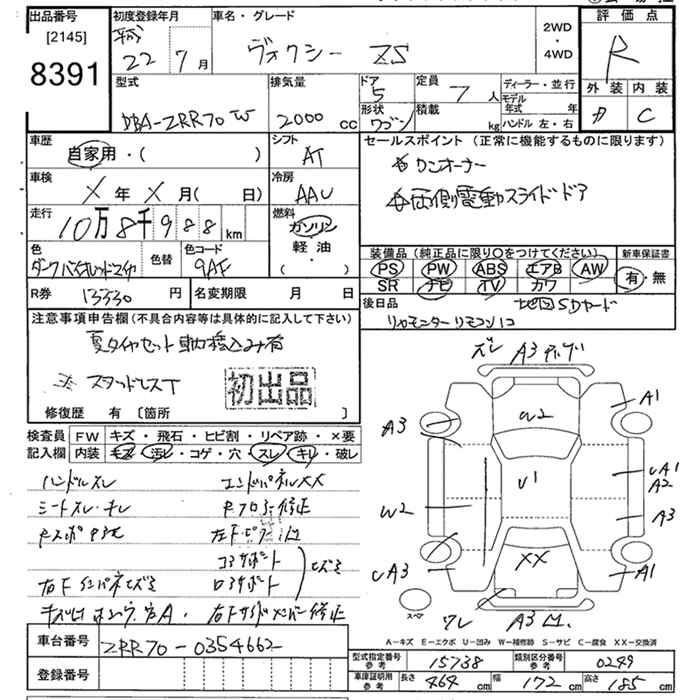 出品番号
[2145]
8391
初度登録年月
平成
22 7 月
車名・グレード
ヴォクシー ZS
2WD
・
4WD
評価点
R
外装 内装
D C
型式
DBA-ZRR70W
排気量
2000 cc
ドア
5
定員
7 人
ディーラー・並行
モデル年式 年
形状
ワゴン
積載
kg
ハンドル 左・右
車歴
自家用・( )
シフト
AT
セールスポイント(正常に機能するものに限ります)
ワンオーナー
両側電動スライドドア
車検
X 年 X 月( 日)
冷房
AAC
走行
10万8千988 km
燃料
ガソリン
軽油
・
( )
色
色替
色コード
9AF
装備品(純正品に限り○をつけてください)
新車保証書
PS PW ABS エアB AW
SR ナビ TV カワ
有・無
R券
13330 円
名変期限 月 日
後日品
地図SDカード
リヤモニターリモコン1コ
注意事項申告欄(不具合内容等は具体的に記入して下さい)
夏タイヤセット
スタッドレスT
初出品
修復歴 有 [箇所 ]
検査員
記入欄
FW キズ・飛石・ヒビ割・リペア跡・×要
内装 キズ・汚レ・コゲ・穴・スレ・キレ・破レ
ハンドルスレ
エンドパネルXX
シートスレ・キレ
Rフロアー修正
コアサポート
ロアサポート
右下インパネヒズミ
右Fサイドメンバー修正
ズレ A3
A3
W2
A1
U1
UA1
A2
W2
A3
XX
UA3
A1
スペア
ワレ
A3 凹
A-キズ E-エクボ U-凹み W-補修跡 S-サビ C-腐食 XX-交換済
車台番号
ZRR70-0354662
登録番号
型式指定番号
参考
15738
類別区分番号
参考
0249
車庫証明用
参考
長さ 464 cm
幅 172 cm
高さ 185 cm